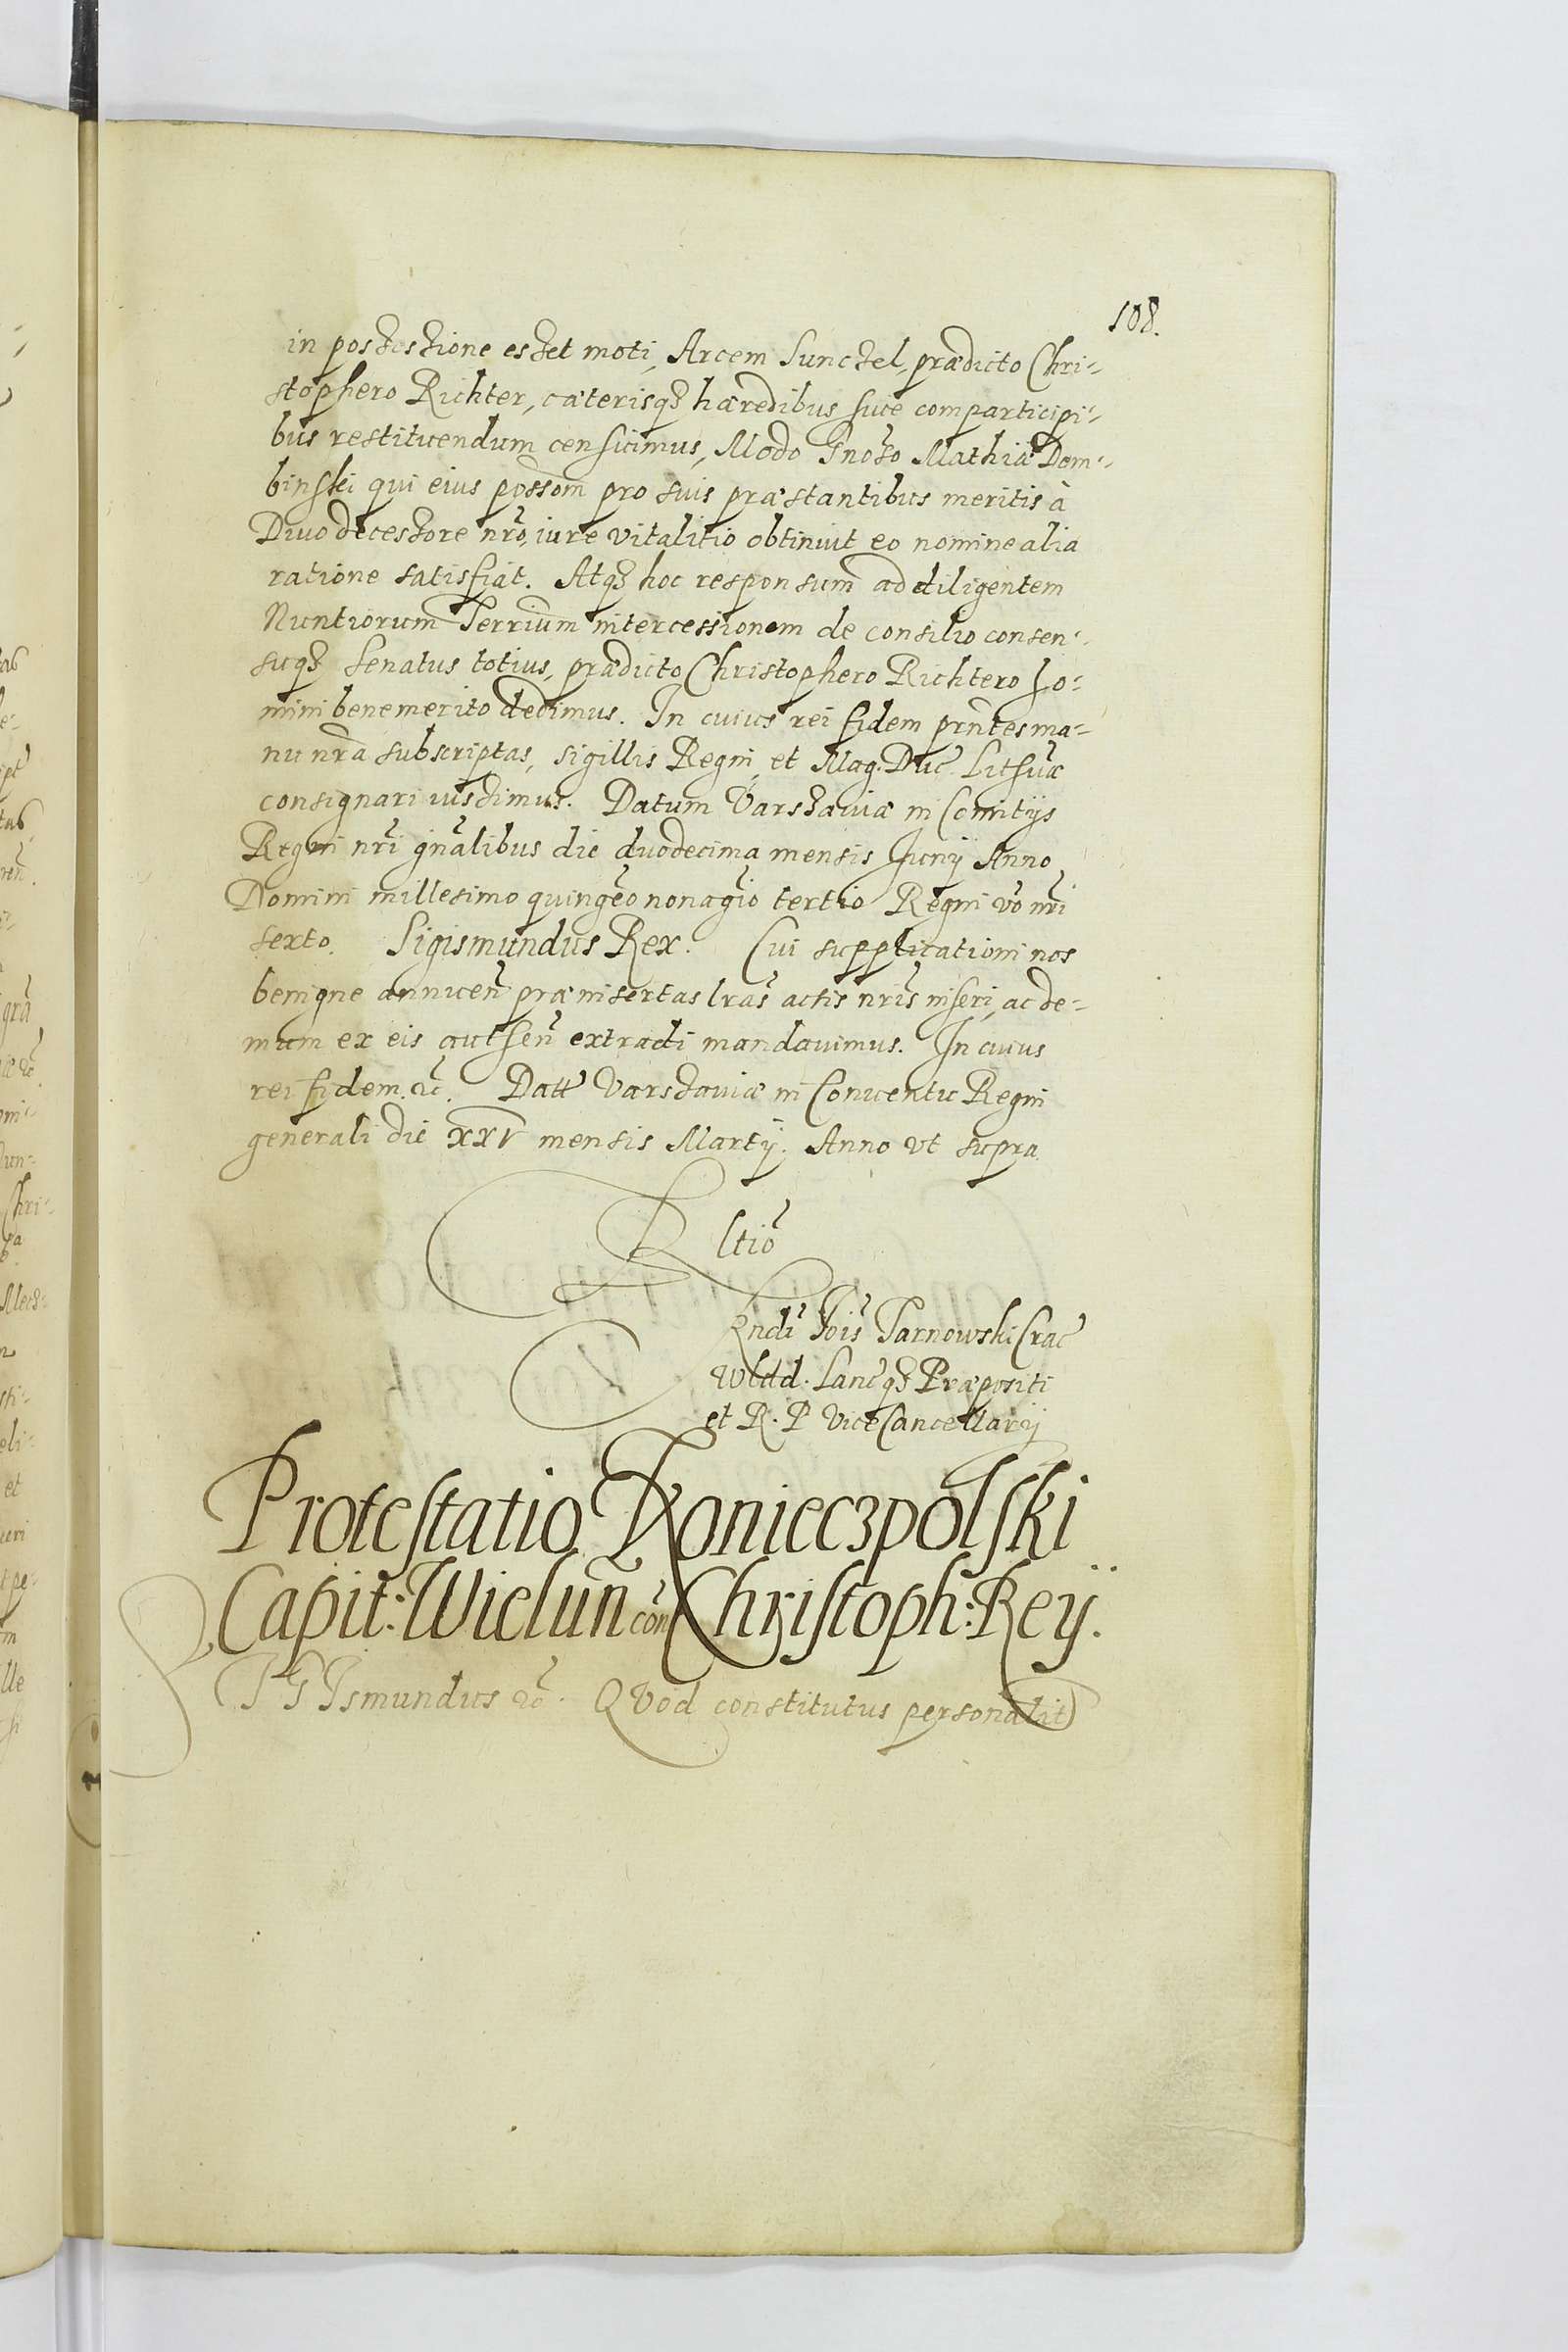 108.
in possessione esset moti, Arcem Sunczel, prædicto Chri-
stophero Richter, cæterisq3 hæredibus sive comparticipi-
bus restituendum censuimus, Modo Gnoso Mathiæ Dem-
binski qui eius possom pro suis præstantibus meritis à
Divo decessore nro, iure vitalitio obtinuit eo nomine alia
ratione satisfiat. Atq3 hoc responsum ad diligentem
Nuntiorum Terrium intercessionem de consilio consen-
suq3 Senatus totius, prædicto Christophero Richtero ho-
mini benemerito dedimus. In cuius rei fidem prntes ma-
nu nra subscriptas, sigillis Regni, et Mag. Duc. Lithuæ
consignari iussimus. Datum Varssaviæ in Comitijs
Regni nri gnalibus die duodecima mensis Junij Anno
Domini millesimo quingeo nonagio tertio Regni vo nri
sexto. Sigismundus Rex. Cui supplicationi nos
benigne annuen præinsertas lras actis nris inseri, ac de-
mum ex eis authen extradi mandavimus. In cuius
rei fidem. &c. Datt Varssaviæ in Conventu Regni
generali die XXV mensis Martij. Anno vt supra.
Rltio
Rndi Jois Tarnowski Crac
Wldd. Lancq3 Præpositi
et R. P ViceCancellarij
Protestatio Konieczpolski
Capit: Wielun con Christoph: Reij.
SIGIsmundus &c. QVod constitutus personalit